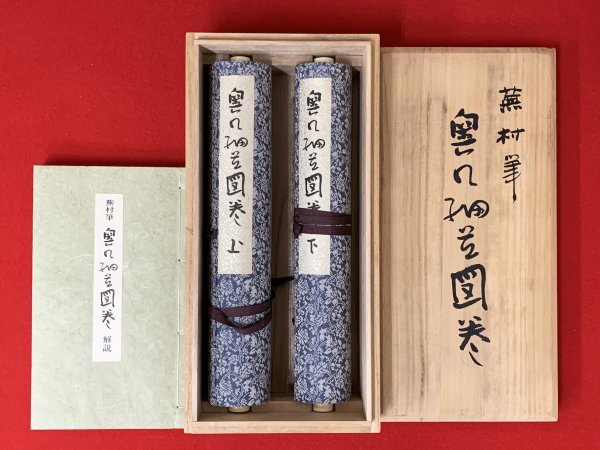 蕪村筆
奥の細道圖巻
奥の細道圖巻 下
奥の細道圖巻 上
蕪村筆 奥の細道圖巻 解説